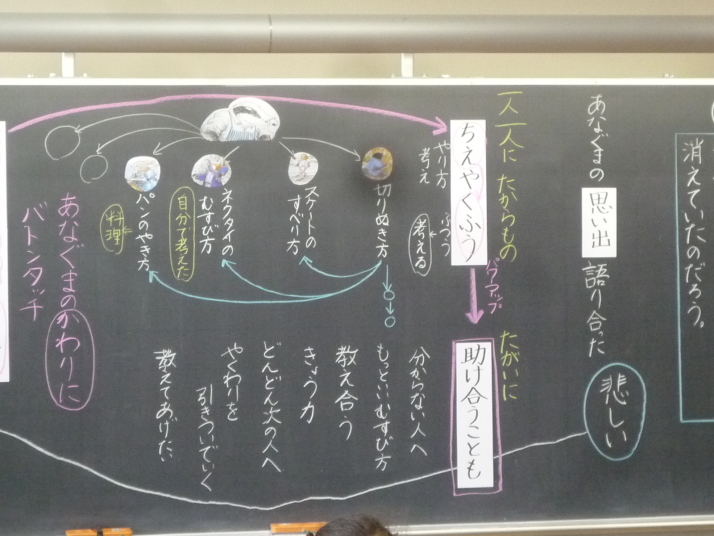 消えていたのだろう。
あなぐまの思い出語り合った
悲しい
一人一人に たからもの
たがいに
ちえやくふう
パワーアップ
助け合うことも
やり方
考え
ふつう
考える
切りぬき方
スケートの
すべり方
ネクタイの
むすび方
自分で考えた
パンのやき方
料理
分からない人へ
もっといいむすび方
教え合う
きょう力
どんどん次の人へ
やくわりを
引きついでいく
教えてあげたい
あなぐまのかわりに
バトンタッチ